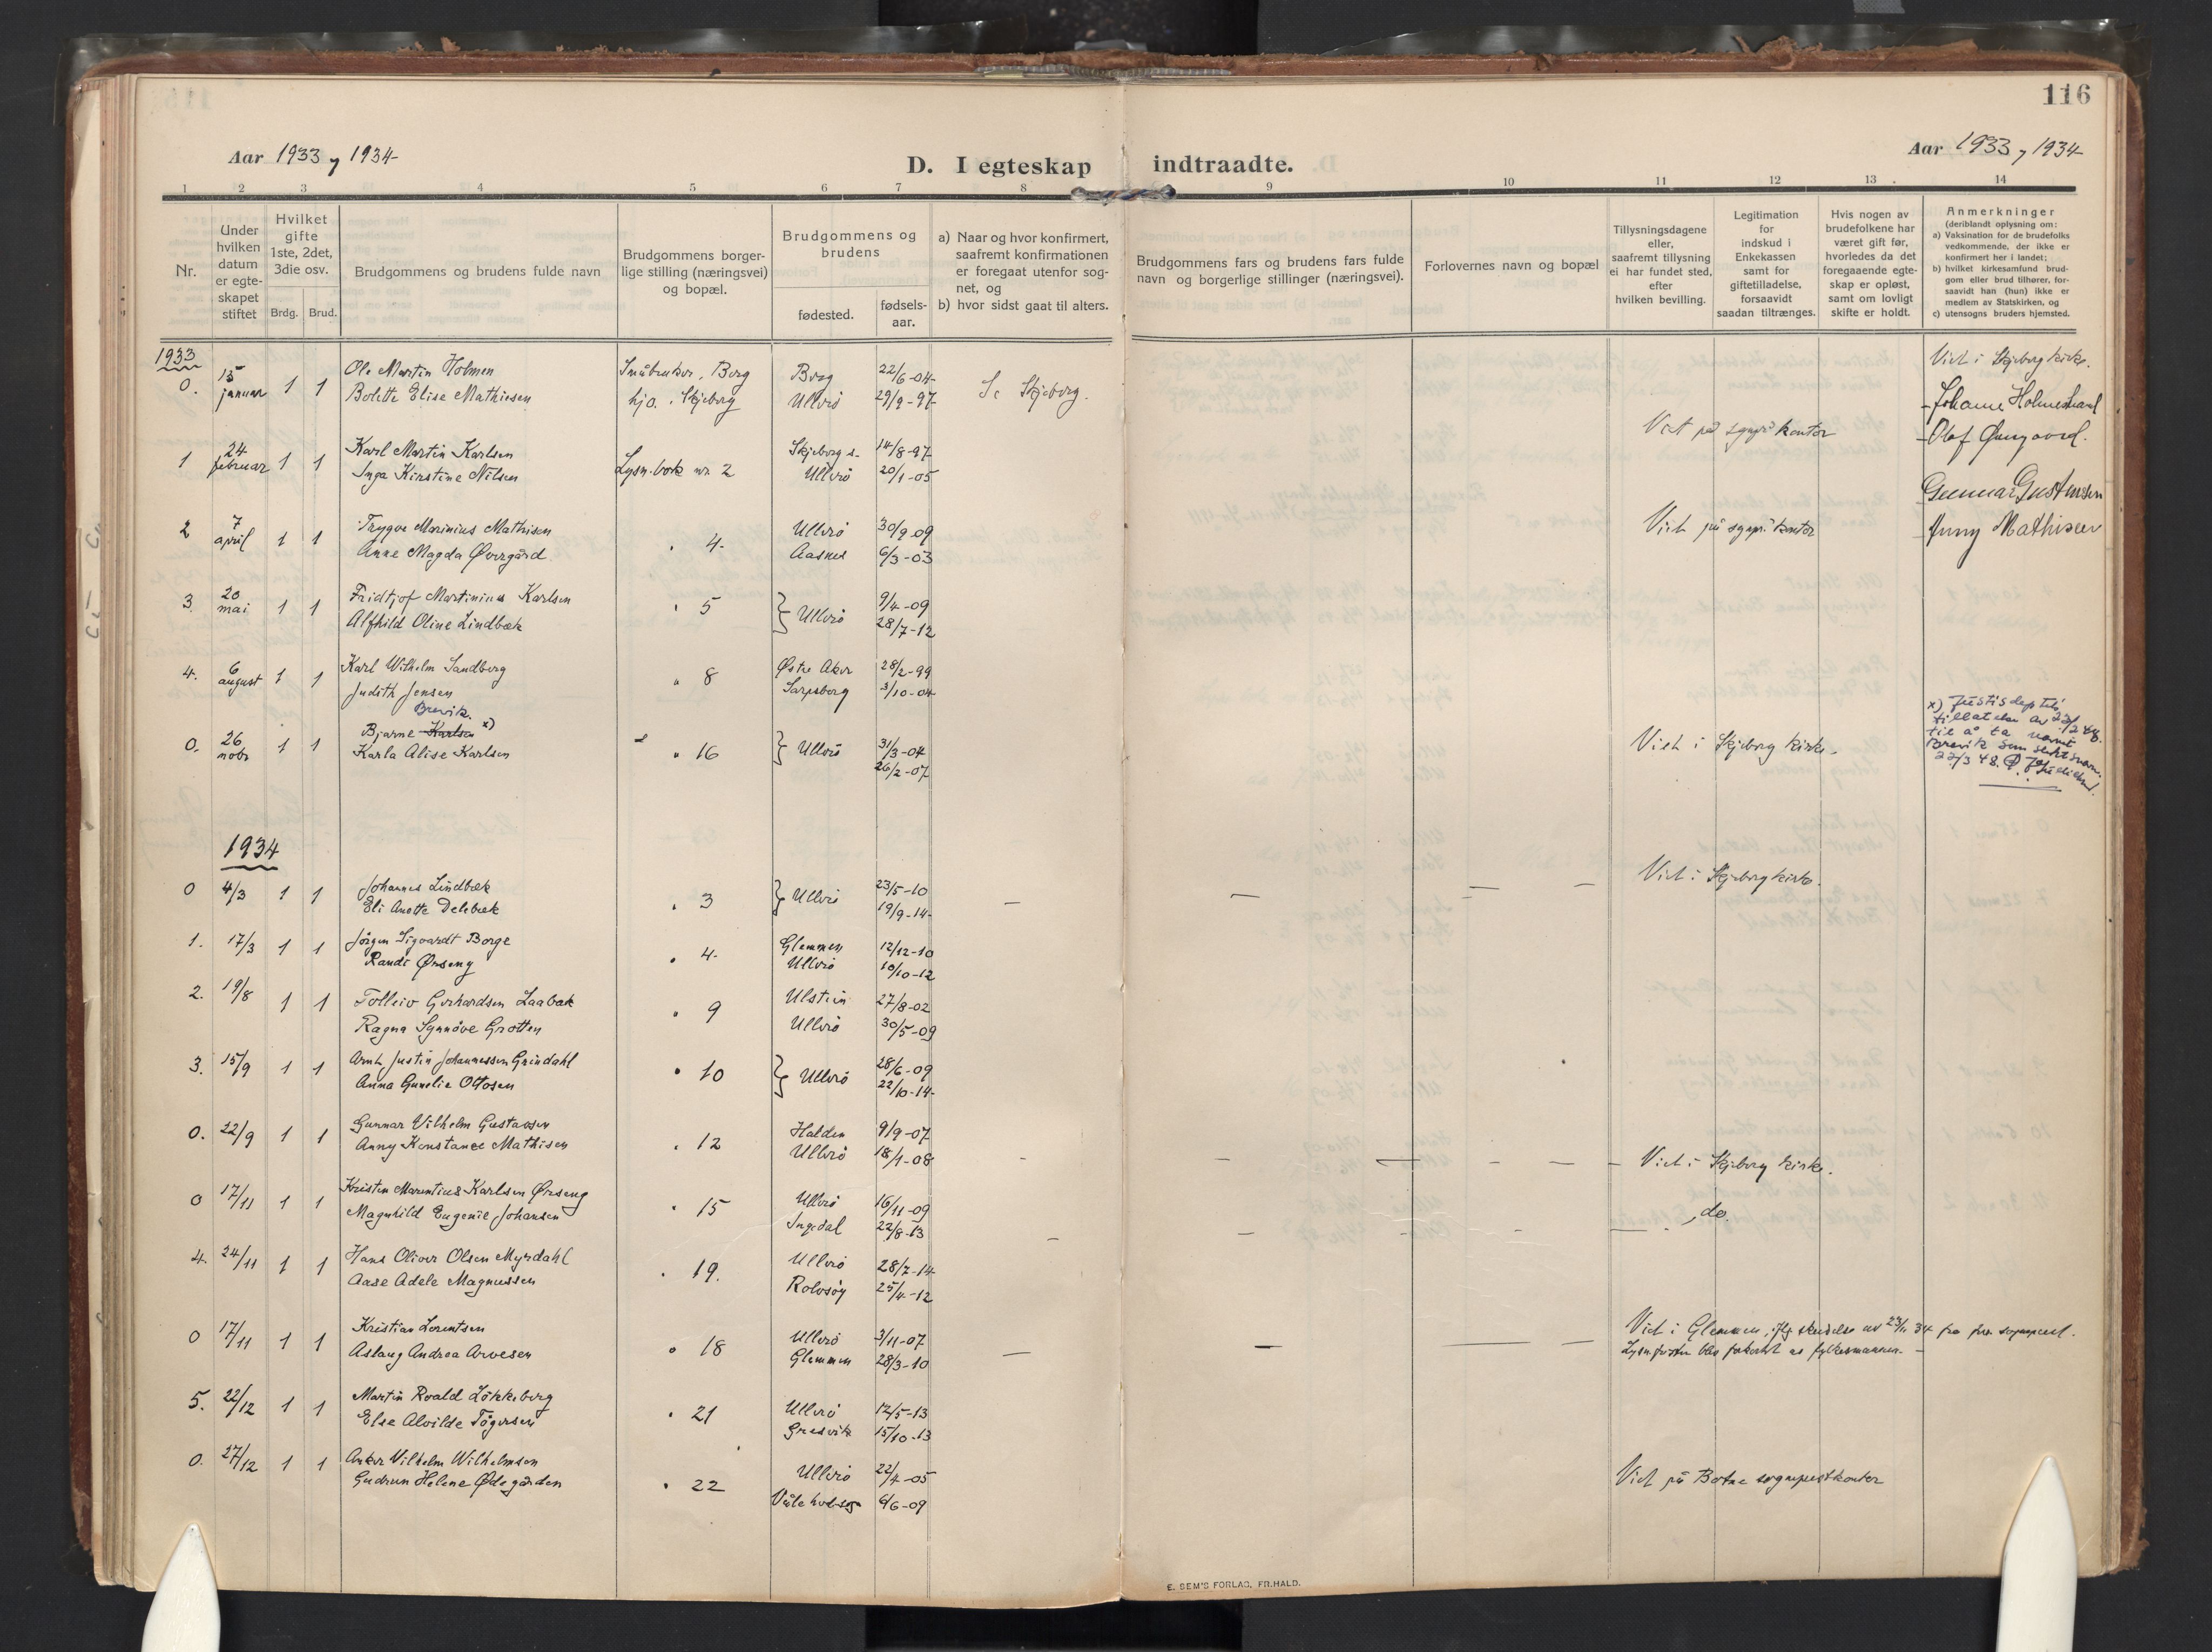 116
Aar 1933 y 1934
D. I egteskap indtraadte.
Aar 1933 y 1934
1 2 3 4 5 6 7 8 9 10 11 12 13 14
Nr.
Under
hvilken
datum
er egte-
skapet
stiftet
Hvilket
gifte
1ste, 2det,
3die osv.
Brdg. Brud.
Brudgommens og brudens fulde navn
Brudgommens borger-
lige stilling (næringsvei)
og bopæl.
Brudgommens og
brudens
fødested.
fødsels-
aar.
a) Naar og hvor konfirmert,
saafremt konfirmationen
er foregaat utenfor sog-
net, og
b) hvor sidst gaat til alters.
Brudgommens fars og brudens fars fulde
navn og borgerlige stillinger (næringsvei).
Forlovernes navn og bopæl
Tillysningsdagene
eller,
saafremt tillysning
ei har fundet sted,
efter
hvilken bevilling.
Legitimation
for
indskud i
Enkekassen
samt for
giftetilladelse,
forsaavidt
saadan tiltrænges.
Hvis nogen av
brudefolkene har
været gift før,
hvorledes da det
foregaaende egte-
skap er opløst,
samt om lovligt
skifte er holdt.
Anmerkninger
(deriblandt oplysning om:
a) Vaksination for de brudefolks
vedkommende, der ikke er
konfirmert her i landet;
b) hvilket kirkesamfund brud-
gom eller brud tilhører, for-
saavidt han (hun) ikke er
medlem av Statskirken, og
c) utensogns bruders hjemsted.
1933
0. 15 januar 1 1 Ole Martin Holmen Småbruker, Borg Borg 22/6-04 Se Skjeberg. Viet i Skjeberg kirke.
Bolette Elise Mathisen hja. Skjeberg Ullerö 29/9-97
Olaf Øvergaard.
1 24 februar 1 1 Karl Martin Karlsen Lysn.bok nr. 2 Skjeberg s. 14/8-97 Viet på sgpr. kontor
Inga Kirstine Nilsen Ullerö 20/1-05
Gunnar Gustavsen
2 7 april 1 1 Trygve Marinius Mathisen " 4 Ullerö 30/9 09 Viet på sgpr. kontor Anny Mathisen
Anne Magda Övergård Aasnes 6/3-03
3. 20 mai 1 1 Fridtjof Martinius Karlsen " 5 Ullerö 9/4-09
Alfhild Oline Lindbæk 28/7-12
4. 6 august 1 1 Karl Wilhelm Sandberg " 8 Østre Aker 28/2-99
Judith Jensen Sarpsborg 3/10-04
Brevik.
0. 26 nobr 1 1 Bjarne Karlsen x) " 16 Ullerö 31/3-04 Viet i Skjeberg kirke.
Karla Alise Karlsen 26/2-07
x) Justisdeptets
tillatelse av 23/2 48.
til å ta navnet
Brevik som slektsnavn.
22/3 48.
1934
0 4/3 1 1 Johannes Lindbæk " 3 Ullerö 23/5-10 Viet i Skjeberg kirke.
Eli Anette Delebæk 19/9-14
1. 17/3 1 1 Jörgen Sigvardt Borge " 4 Glemmen 12/12-10
Randi Ørseng Ullerö 10/10-12
2. 19/8 1 1 Tolleiv Gerhardsen Laabak " 9 Ulstein 27/8-02
Ragna Synnöve Grotten Ullerö 30/5-09
3. 15/9 1 1 Arnt Justin Johannessen Grindahl " 10 Ullerö 28/6-09
Anna Gunelie Ottosen 22/10-14
0. 22/9 1 1 Gunnar Vilhelm Gustavsen " 12 Halden 9/9-07
Anny Konstance Mathisen Ullerö 18/1-08 Viet i Skjeberg kirke.
0 17/11 1 1 Kristen Marentius Karlsen Ørseng " 15 Ullerö 16/11-09
Magnhild Eugenie Johansen Ingedal 22/8-13 do.
4. 24/11 1 1 Hans Oliver Olsen Myrdahl " 19. Ullerö 28/7-14
Aase Adele Magnussen Rolvsöy 25/4-12
0 17/11 1 1 Kristian Lorentsen " 18 Ullerö 3/11-07 Viet i Glemmen, iflg. skrivelse av 23/11 34 fra
Aslaug Andrea Arvesen Glemmen 28/3-10 Lysn.fristen ble forkortet av fylkesmannen.
5. 22/12 1 1 Martin Roald Lökkeberg " 21 Ullerö 12/5-13
Else Alvilde Tögersen Gresvik 15/10-13
0. 27/12 1 1 Anker Vilhelm Wilhelmsen " 22 Ullerö 22/4-05 Viet på Botne sogneprestkontor
Gudrun Helene Ødegården 6/6-09
E. SEM'S FORLAG, FR.HALD.